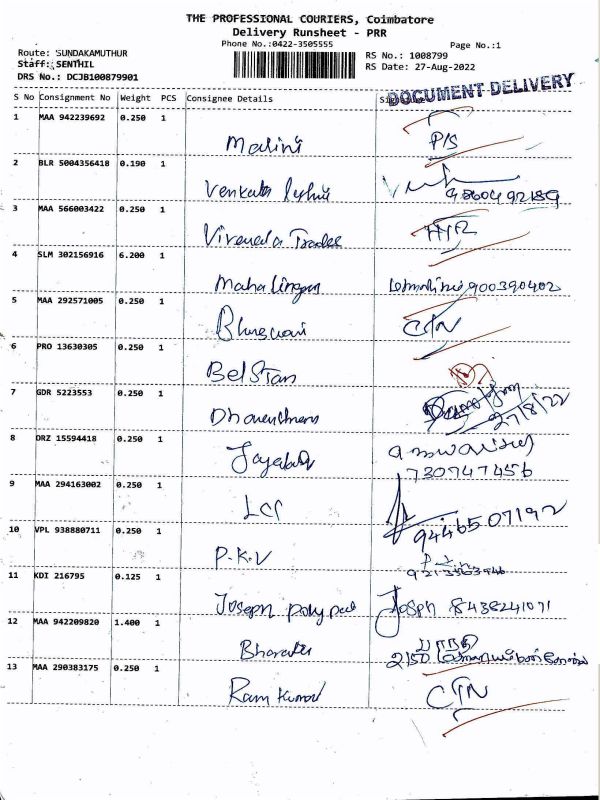 THE PROFESSIONAL COURIERS, Coimbatore
Delivery Runsheet - PRR
Phone No.:0422-3505555
Page No.:1
Route: SUNDAKAMUTHUR
RS No.: 1008799
Staff: SENTHIL
RS Date: 27-Aug-2022
DRS No.: DCJB100879901
DOCUMENT DELIVERY
S No Consignment No Weight PCS Consignee Details
1 MAA 942239692 0.250 1
Malini P/S
2 BLR 5004356418 0.190 1
Venkata
3 MAA 566003422 0.250 1
4 SLM 302156916 6.200 1
Mahalingam 900390402
5 MAA 292571005 0.250 1
CTN
6 PRO 13630305 0.250 1
BelStar
7 GDR 5223553 0.250 1
27/8/22
8 DRZ 15594418 0.250 1
730747456
9 MAA 294163002 0.250 1
9446507192
10 VPL 938880711 0.250 1
P.K.V
11 KDI 216795 0.125 1
Joseph Joseph 8438241071
12 MAA 942209820 1.400 1
2150
13 MAA 290383175 0.250 1
Ram Kumar CTN